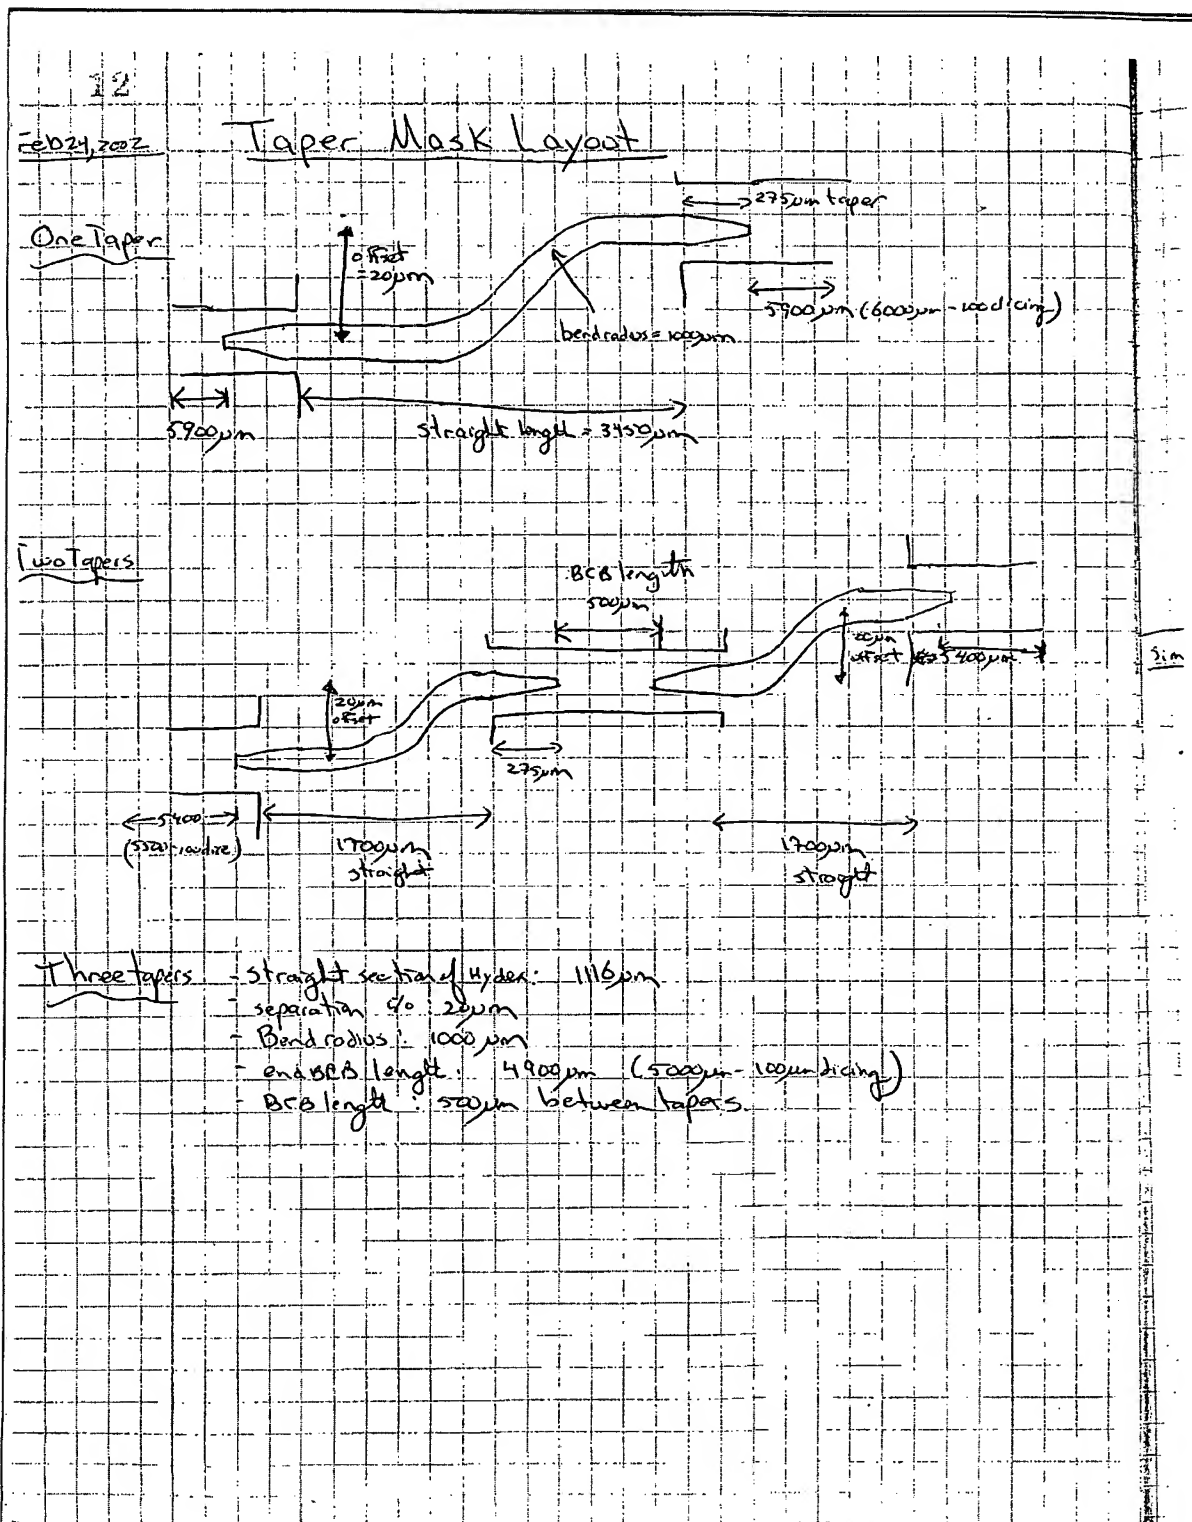 12
Feb 24, 2002
Taper Mask Layout
One Taper
offset
=20μm
275μm taper
5900μm (6000μm - 100 dicing)
bend radius = 1000μm
5900μm
straight length = 3450μm
Two Tapers
BCB length
500μm
20μm
offset
20μm
offset
5400μm
Sim
275μm
5400
(5500-100 dice)
1700μm
straight
1700μm
straight
Three tapers
- straight section of Hydex: 1116μm
- separation c/o: 20μm
- Bend radius: 1000μm
- end BCB length: 4900μm (5000μm - 100μm dicing)
- BCB length: 500μm between tapers.